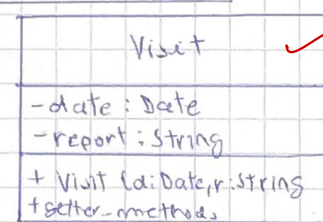 Visit
- date : Date
- report : String
+ Visit (d: Date, r: String
+ getter_methods